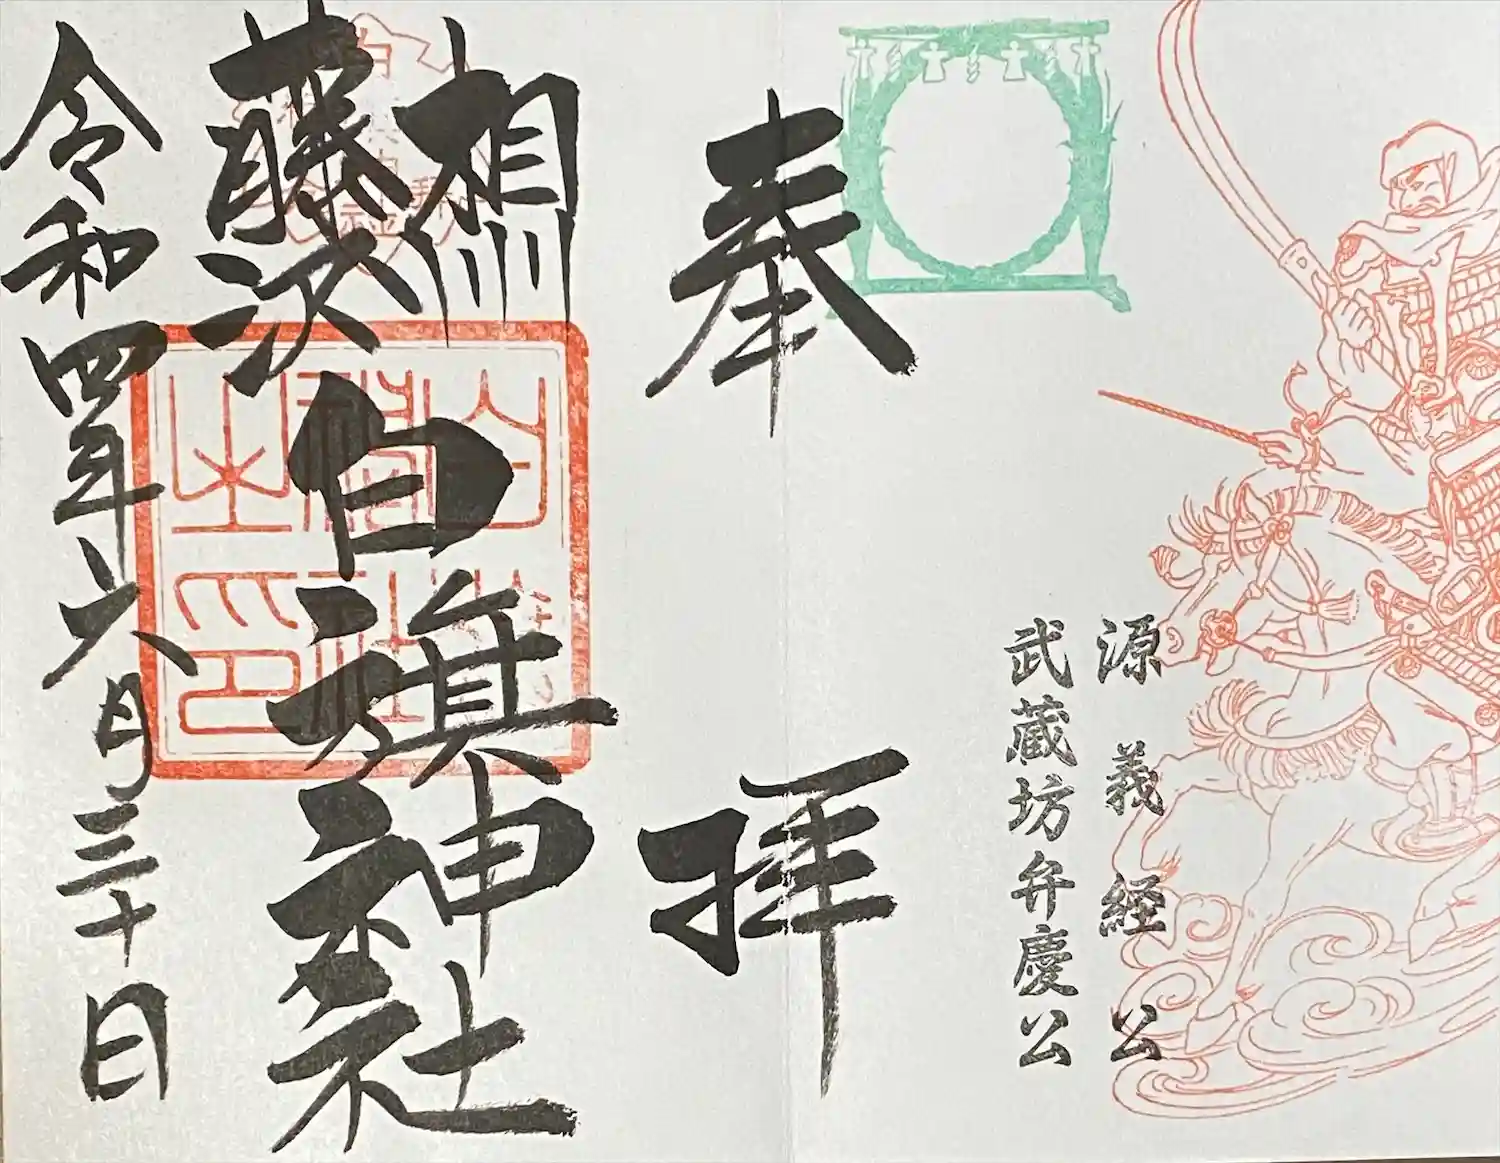 源義経公
武蔵坊弁慶公
奉拝
相州
藤沢白旗神社
白旗
神社
之印
令和四年六月三十日